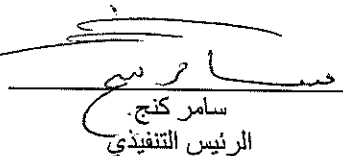 سامر كنج.
الرئيس التنفيذي